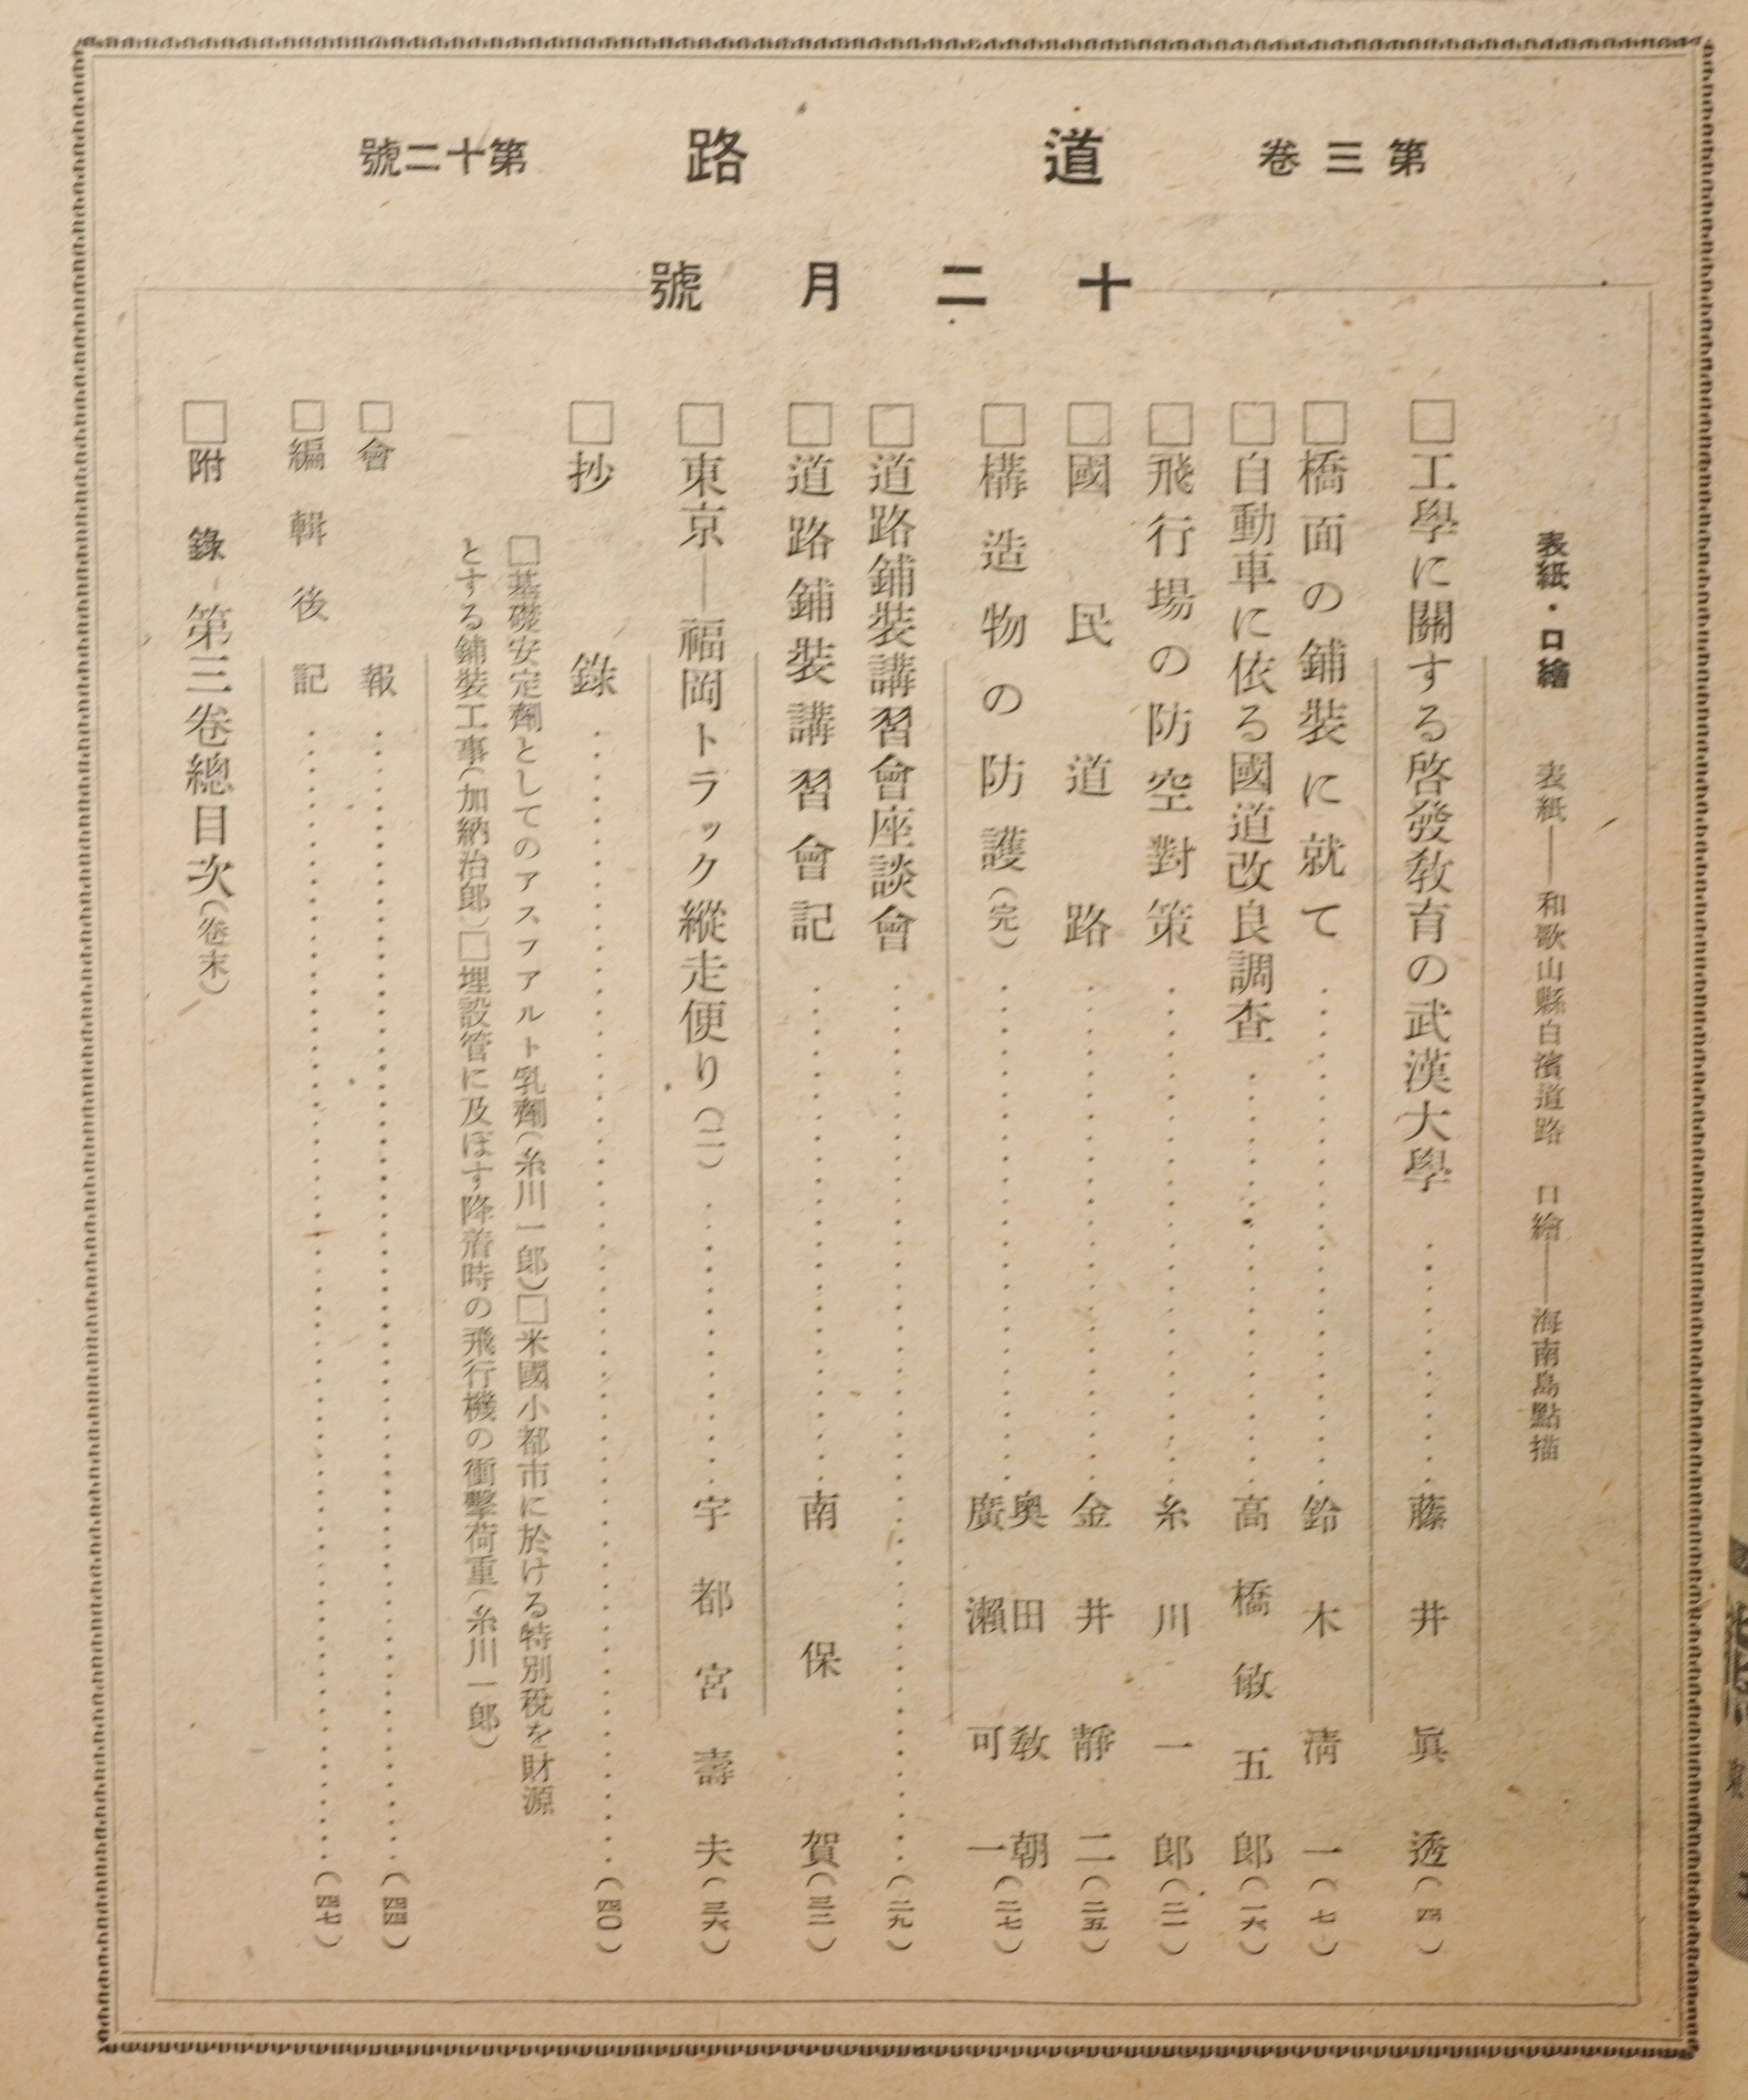 第三卷 道路 第十二號
十二月號
表紙・口繪 表紙——和歌山縣白濱道路 口繪——海南島點描
□工學に關する啓發敎育の武漢大學…………藤井眞透（四）
□橋面の鋪裝に就て…………鈴木淸一（七）
□自動車に依る國道改良調査…………高橋敏五郎（一六）
□飛行場の防空對策…………糸川一郎（二一）
□國民道路…………金井靜二（二五）
□構造物の防護（完）…………奧田敎朝 廣瀨可一（二七）
□道路鋪裝講習會座談會…………（二九）
□道路鋪裝講習會記…………南保賀（三二）
□東京——福岡トラック縱走便り（二）…………宇都宮壽夫（三六）
□抄錄…………（四〇）
□基礎安定劑としてのアスファルト乳劑（糸川一郎）□米國小都市に於ける特別稅を財源
とする鋪裝工事（加納治郎）□埋設管に及ぼす降着時の飛行機の衝擊荷重（糸川一郎）
□會報…………（四四）
□編輯後記…………（四七）
□附錄-第三卷總目次（卷末）